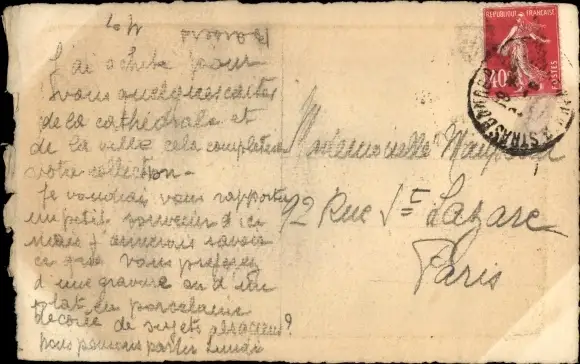 J'ai acheté pour
vous quelques cartes
de la cathédrale et
de la ville cela complétera
votre collection -
Je voudrai vous rapporter
un petit souvenir d'ici
mais j'aimerais savoir
ce que vous préférez
d'une gravure ou d'un
plat en porcelaine
décorée de sujets alsaciens?
nous pensons partir Lundi
Mademoiselle
92 Rue St Lazare
Paris
REPUBLIQUE FRANÇAISE
40c
POSTES
STRASBOURG